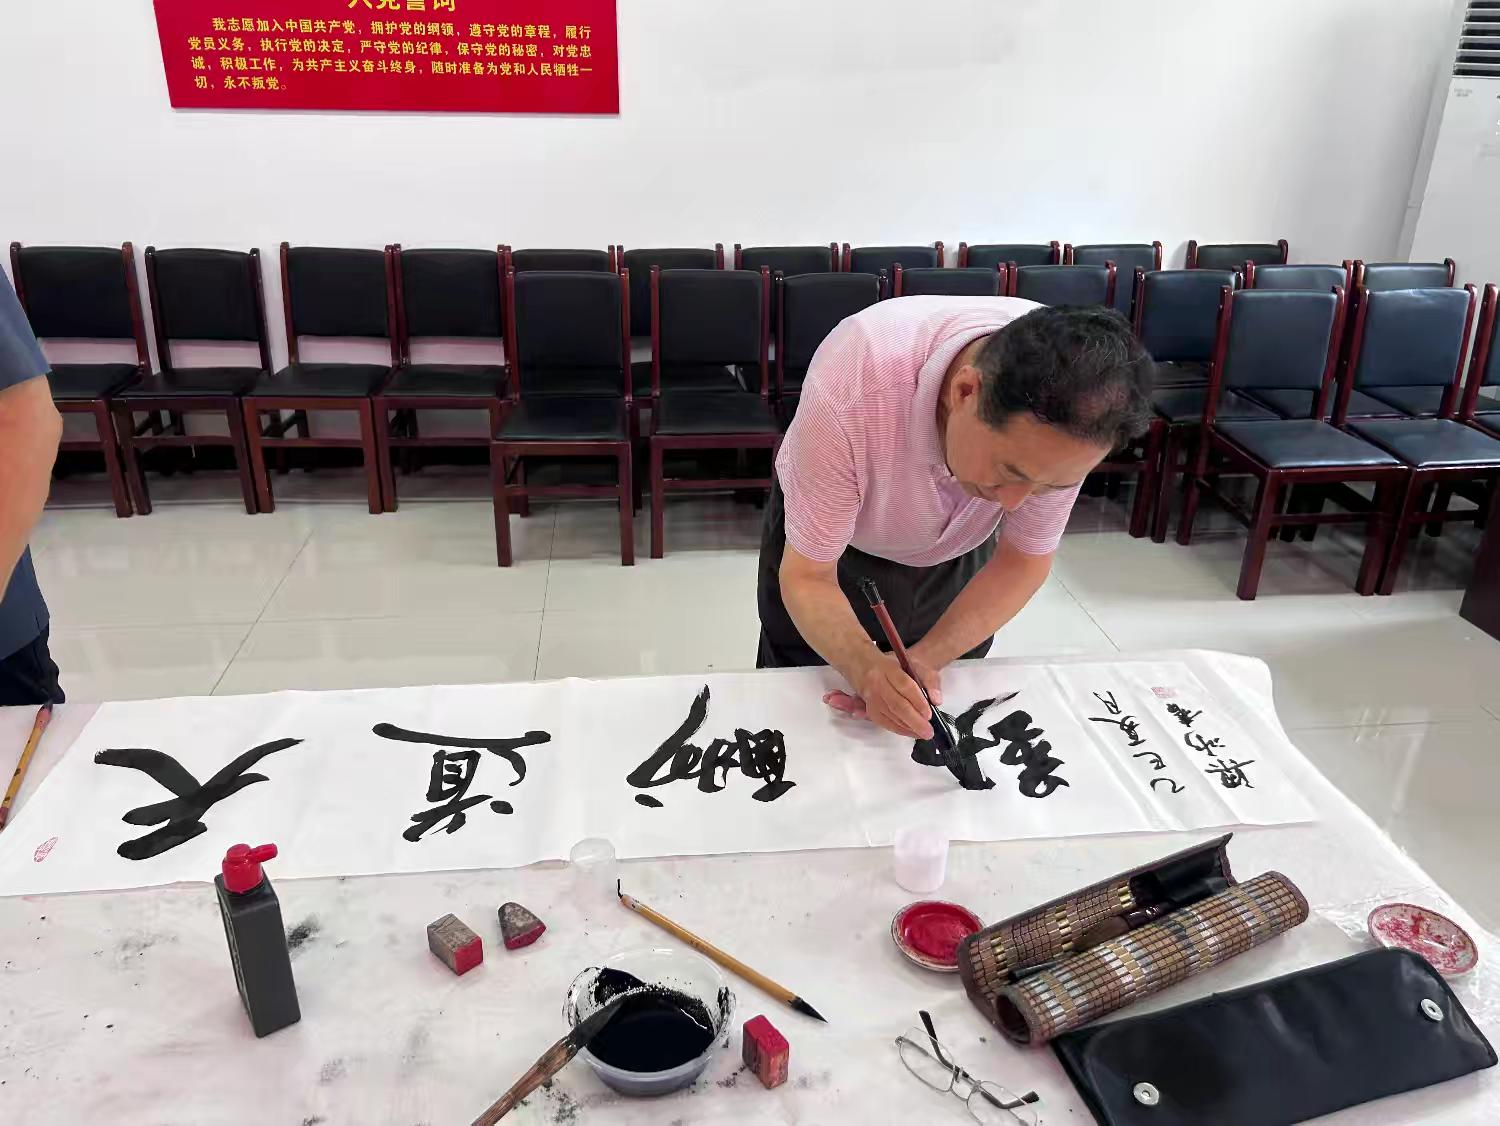 入党誓词
我志愿加入中国共产党，拥护党的纲领，遵守党的章程，履行
党员义务，执行党的决定，严守党的纪律，保守党的秘密，对党忠
诚，积极工作，为共产主义奋斗终身，随时准备为党和人民牺牲一
切，永不叛党。
天道酬勤
乙巳夏月
书